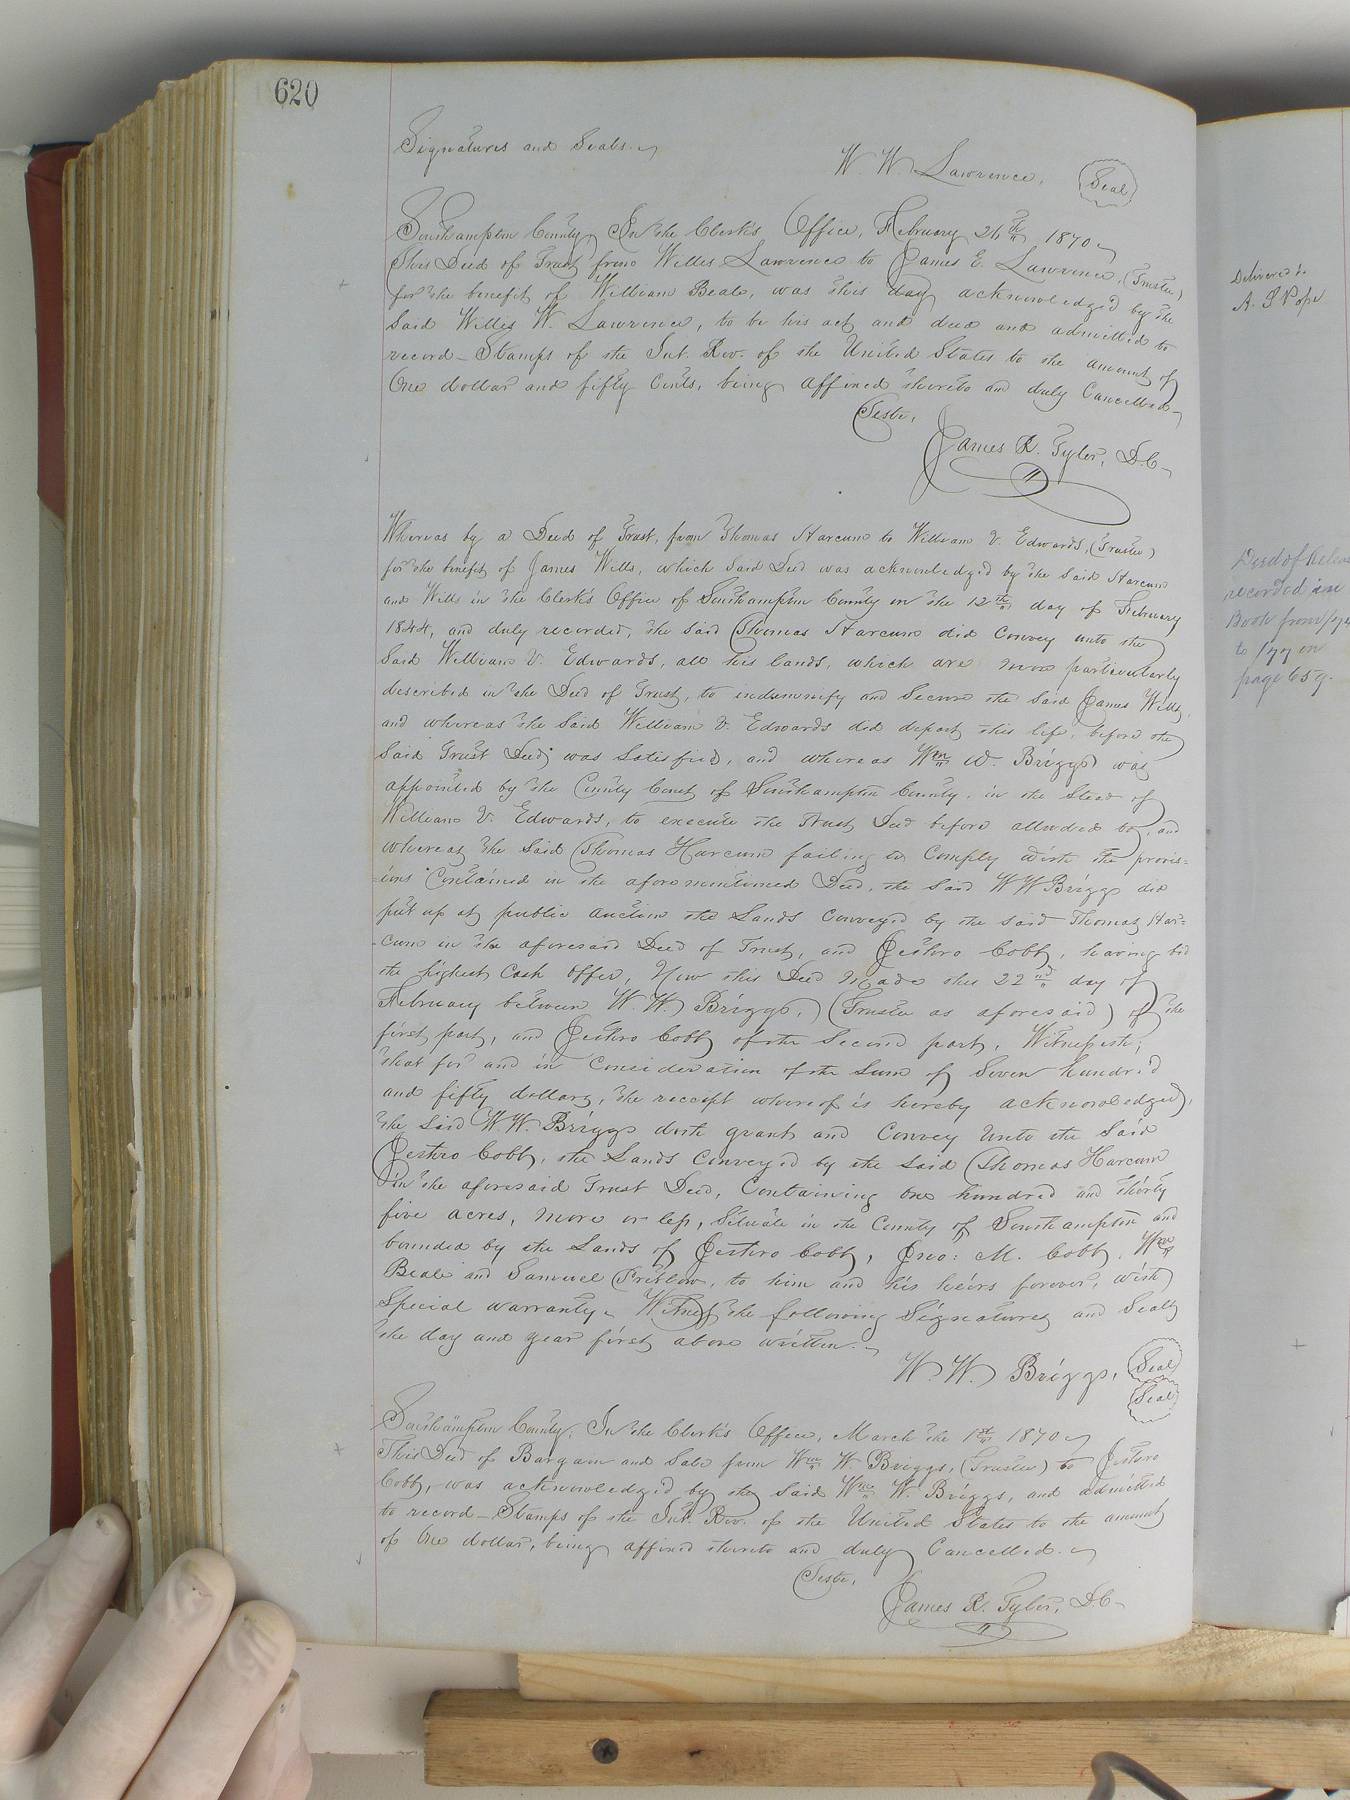 620
Signatures and Seals.
W. W. Lawrence, Seal
Southampton County, In the Clerk's Office, February 26th 1870
This Deed of Trust from Willis Lawrence to James E. Lawrence, (Trustee)
for the benefit of William Beale, was this day acknowledged by the
Said Willis W. Lawrence, to be his act and deed and admitted to
record - Stamps of the Int. Rev. of the United States to the amount of
One dollar and fifty Cents, being affixed thereto and duly Cancelled -
Teste,
James R. Tyler, D.C.
Whereas by a Deed of Trust, from Thomas Harcum to William V. Edwards, (Trustee)
for the benefit of James Wills, which Said Deed was acknowledged by the Said Harcum
and Wills in the Clerk's Office of Southampton County on the 12th day of February
1844, and duly recorded, the said Thomas Harcum did Convey unto the
Said William V. Edwards, all his lands, which are more particularly
described in the Deed of Trust, to indemnify and Secure the Said James Wills,
and whereas the Said William V. Edwards did depart this life, before the
Said Trust Deed was Satisfied, and whereas Wm W. Briggs was
appointed by the County Court of Southampton County, in the Stead of
William V. Edwards, to execute the trust Deed before alluded to, and
whereas the Said Thomas Harcum failing to Comply with the provis=
=ions Contained in the aforementioned Deed, the Said W W Briggs did
put up at public auction the Lands Convey'd by the Said Thomas Har=
=cum in the aforesaid Deed of Trust, and Jethro Cobb, having bid
the highest Cash offer, Now this Deed Made this 22nd day of
February between W. W. Briggs, (Trustee as aforesaid) of the
first part, and Jethro Cobb of the Second part, Witnesseth;
that for and in Consideration of the Sum of Seven hundred
and fifty dollars, the receipt whereof is hereby acknowledged,
the Said W W. Briggs doth grant and Convey unto the Said
Jethro Cobb, the Lands Convey'd by the Said Thomas Harcum
in the aforesaid Trust Deed, Containing One hundred and thirty
five acres, more or less, Situate in the County of Southampton and
bounded by the Lands of Jethro Cobb, Jno: M. Cobb, Wm
Beale and Samuel Pretlow, to him and his heirs forever, with
Special warranty. Witness the following Signatures and Seals
the day and year first above written.
W. W. Briggs, Seal
Seal
Southampton County, In the Clerk's Office, March the 1st 1870
This Deed of Bargain and Sale from Wm W. Briggs, (Trustee) to Jethro
Cobb, was acknowledged by the Said Wm W. Briggs, and admitted
to record - Stamps of the Int. Rev. of the United States to the amount
of One dollar, being affixed thereto and duly Cancelled.
Teste,
James R. Tyler, D.C.
Delivered to
A. S Pope
Deed of
recorded in
Book from
to 177 on
page 659.